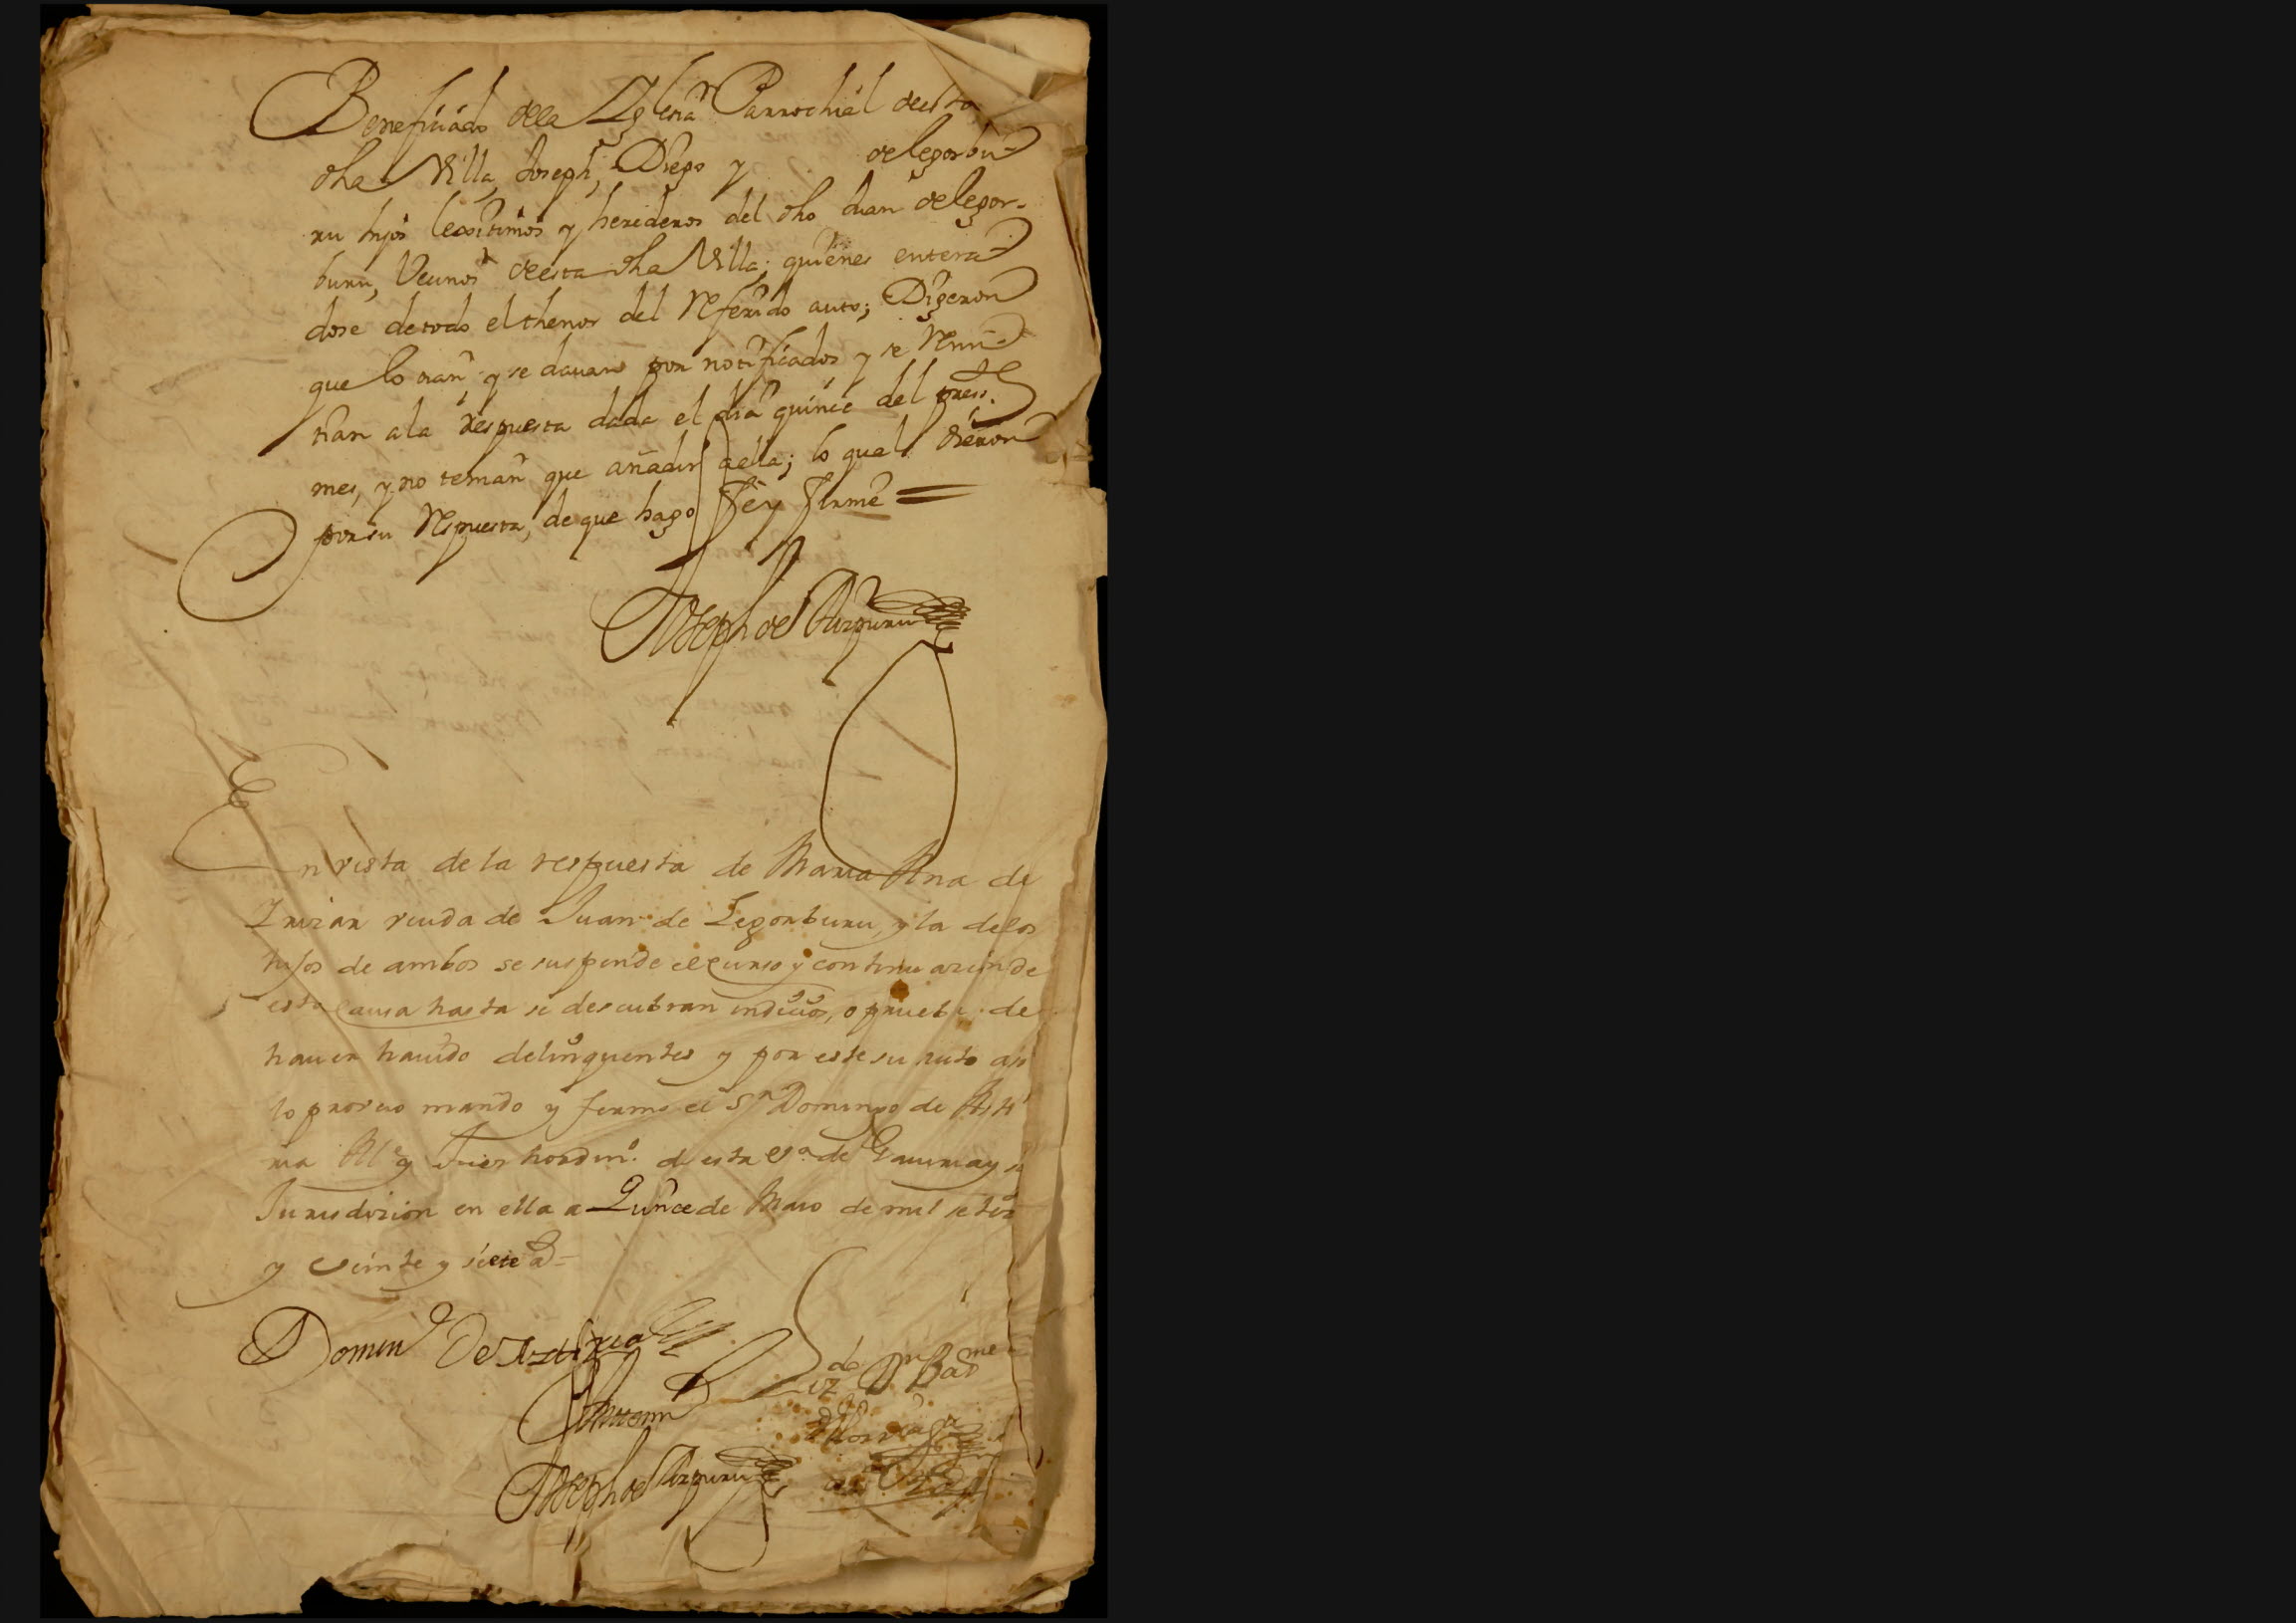 Beneficiado dela Yglesia Parrochial desta
dha Villa, Joseph, Diego y de legorbu-
ru hijos lexitimos y herederos del dho Juan de legor-
buru, Vecinos deesta dha Villa; quienes entera-
dose de todo el thenor del Referido auto; Digeron
que lo oian y se davan por notificados y se Remi-
tian ala respuesta dada el dia quince del press.te
mes, y no tenian que añadir aella; lo qual dieron
por su Respuesta, de que hago feey firme =
Joseph de Aizpuru
En vista de la respuesta de Maria Ana de
viuda de Juan de Legorburu, y la delos
hijos de ambos se suspende el curso y continuazion de
esta causa hasta se descubran indicios, o prueba de
hauer hauido delinquentes y por este su auto asi
lo proveio mando y firmo el Sr Domingo de
Alc.e y Juez hordin.o de esta V.a de Gauiria y su
Jurisdizion en ella a Quince de Maio de mil setez
y veinte y siete a =
Domin.o De
Antemi
Liz.do Dn Bar.me
Joseph de Aizpuru